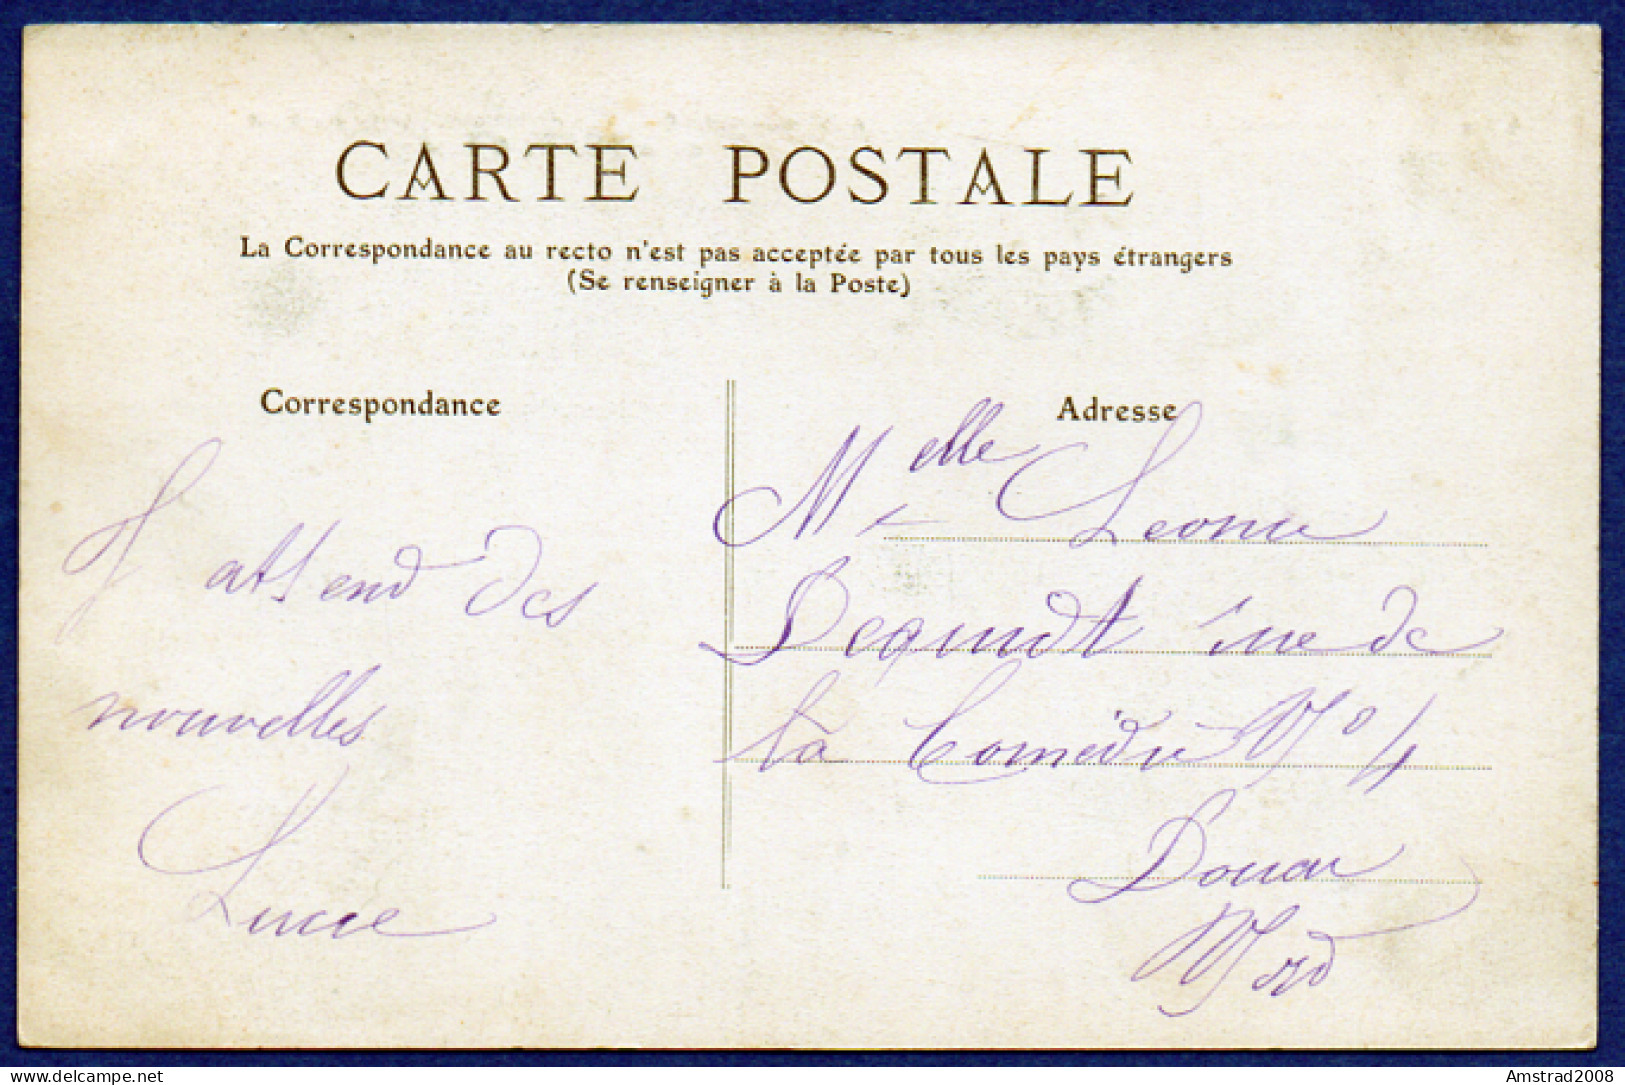 CARTE POSTALE
La Correspondance au recto n'est pas acceptée par tous les pays étrangers
(Se renseigner à la Poste)
Correspondance
J attend des
nouvelles
Lucie
Adresse
Melle Leonie
rue de
la Comédie No 4
Douai
Nord
www.delcampe.net
Amstrad2008